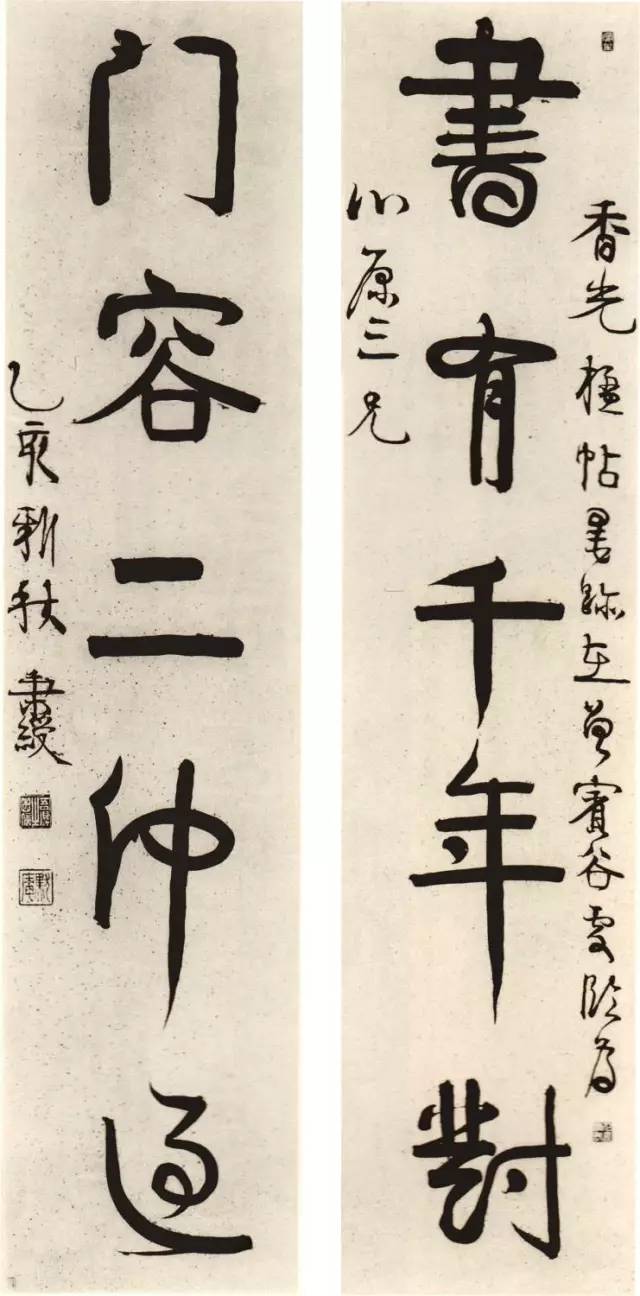 香光楹帖墨跡在曾賓谷處臨為
書有千年對
原三兄
门容二仲過
乙亥新秋 秉綬